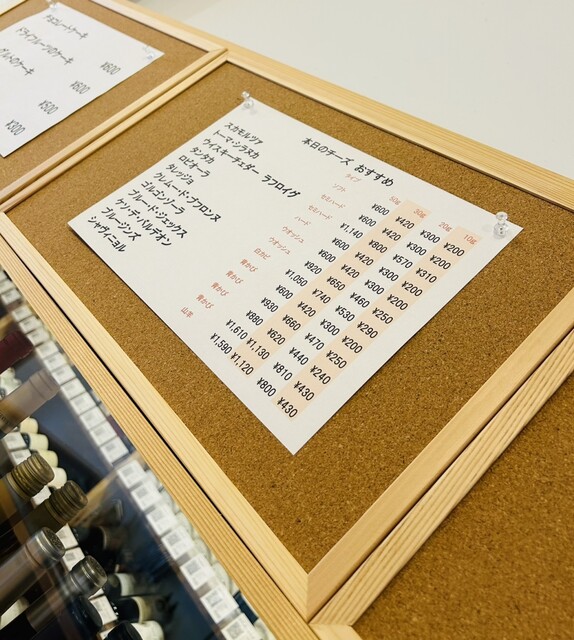 チョコレートケーキ
ドライフルーツのケーキ
¥600
¥600
¥500
¥300
本日のチーズ おすすめ
タイプ 50g 30g 20g 10g
スカモルツァ
トーマ・シラヌカ
ウイスキーチェダー ラフロイグ
タンタカ
ロビオーラ
タレッジョ
クレムード・ブブロンヌ
ゴルゴンゾーラ
ブルード・ジェックス
ケソ・デ・バルデオン
ブルージンズ
シャヴィニョル
ソフト
セミハード
セミハード
ハード
ウオッシュ
ウオッシュ
白カビ
青かび
青かび
青かび
山羊
¥600 ¥420 ¥300 ¥200
¥1,140 ¥800 ¥570 ¥310
¥600 ¥420 ¥300 ¥200
¥600 ¥420 ¥300 ¥200
¥920 ¥650 ¥460 ¥250
¥1,050 ¥740 ¥530 ¥290
¥600 ¥420 ¥300 ¥200
¥930 ¥660 ¥470 ¥250
¥880 ¥620 ¥440 ¥240
¥1,610 ¥1,130 ¥810 ¥430
¥1,590 ¥1,120 ¥800 ¥430